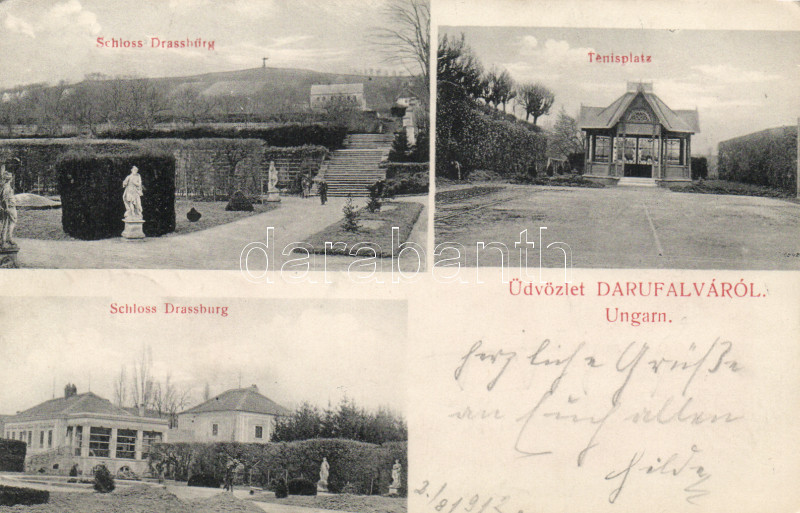 Schloss Drassburg
Tenisplatz
darabanth
Üdvözlet DARUFALVÁRÓL.
Ungarn.
Schloss Drassburg
herzliche Grüße
an Euch allen
Hilde
2./8 1912.